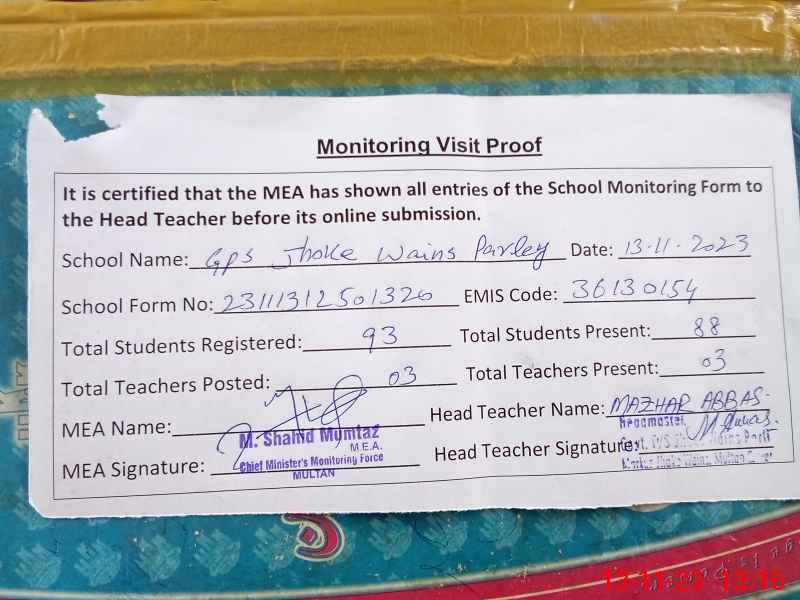 Monitoring Visit Proof
It is certified that the MEA has shown all entries of the School Monitoring Form to
the Head Teacher before its online submission.
School Name: GPS Jhoke Wains Parley Date: 13-11-2023
School Form No: 23111312501320 EMIS Code: 36130154
Total Students Registered: 93 Total Students Present: 88
Total Teachers Posted: 03 Total Teachers Present: 03
MEA Name: Head Teacher Name: MAZHAR ABBAS
M. Shahid Mumtaz
M.E.A.
Headmaster
MEA Signature: Chief Minister's Monitoring Force Head Teacher Signature:
MULTAN